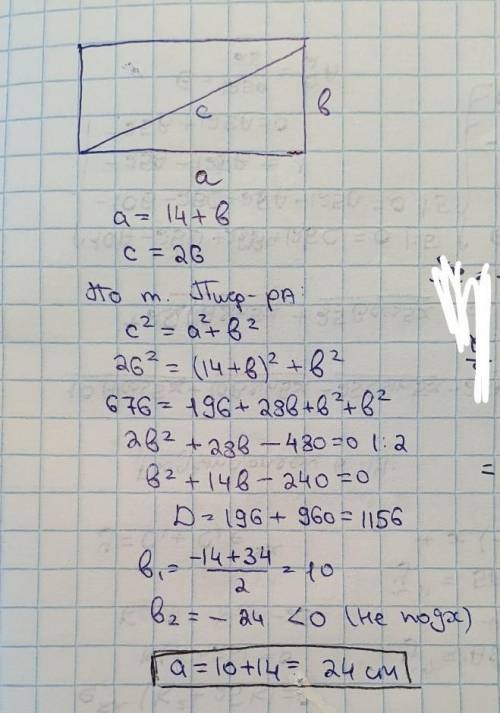 c
в
a
a = 14 + в
c = 26
По т. Пиф-рА:
c² = a² + в²
26² = (14+в)² + в²
676 = 196 + 28в + в² + в²
2в² + 28в − 480 = 0 |:2
в² + 14в − 240 = 0
D = 196 + 960 = 1156
в₁ = (-14+34)/2 = 10
в₂ = − 24 < 0 (не подх)
a = 10 + 14 = 24 см
=